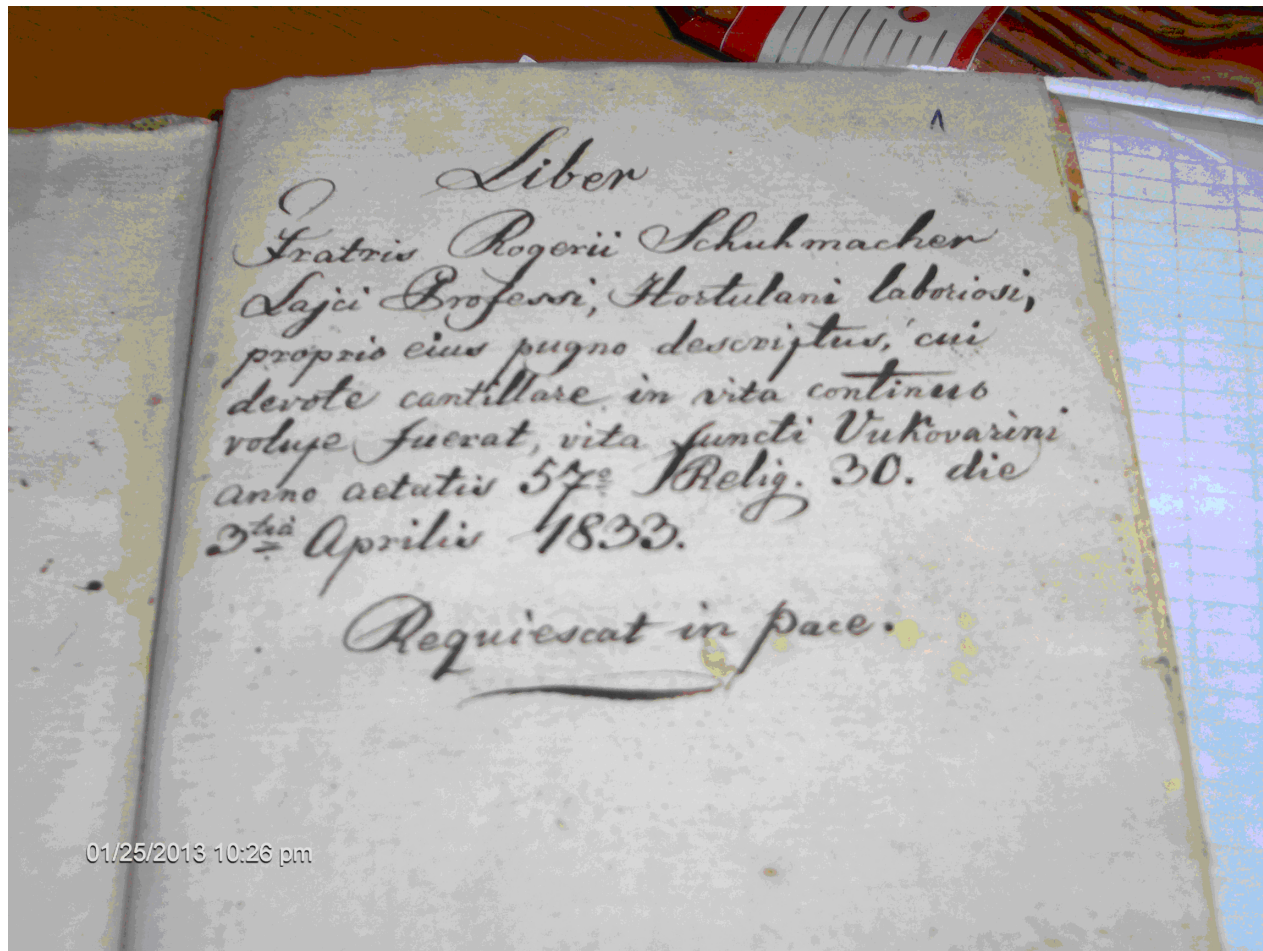 1
Liber
Fratris Rogerii Schuhmacher
Lajci Professi, Hortulani laboriosi,
proprio eius pugno descriptus, cui
devote cantillare in vita continuo
volupe fuerat, vita functi Vukovarini
anno aetatis 57º Relig. 30. die
3tiâ Aprilis 1833.
Requiescat in pace.
01/25/2013 10:26 pm